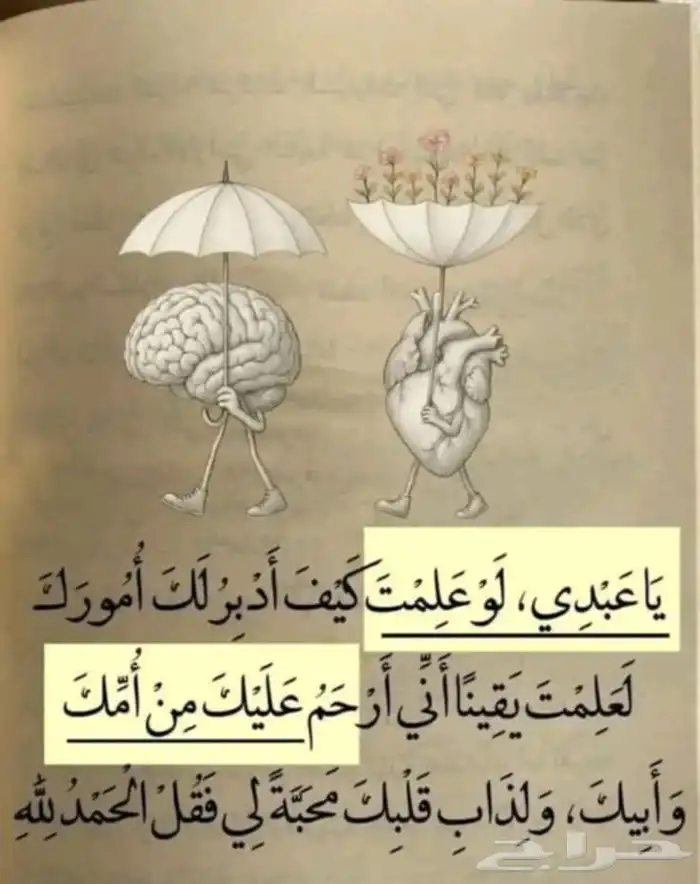 يَا عَبْدِي، لَوْ عَلِمْتَ كَيْفَ أَدْبِرُ لَكَ أُمُورَكَ
لَعَلِمْتَ يَقِينًا أَنِّي أَرْحَمُ عَلَيْكَ مِنْ أُمِّكَ
وَأَبِيكَ، وَلِذَابِ قَلْبِكَ مَحَبَّةً لِي فَقُلْ الْحَمْدُ لِلَّهِ
حراج